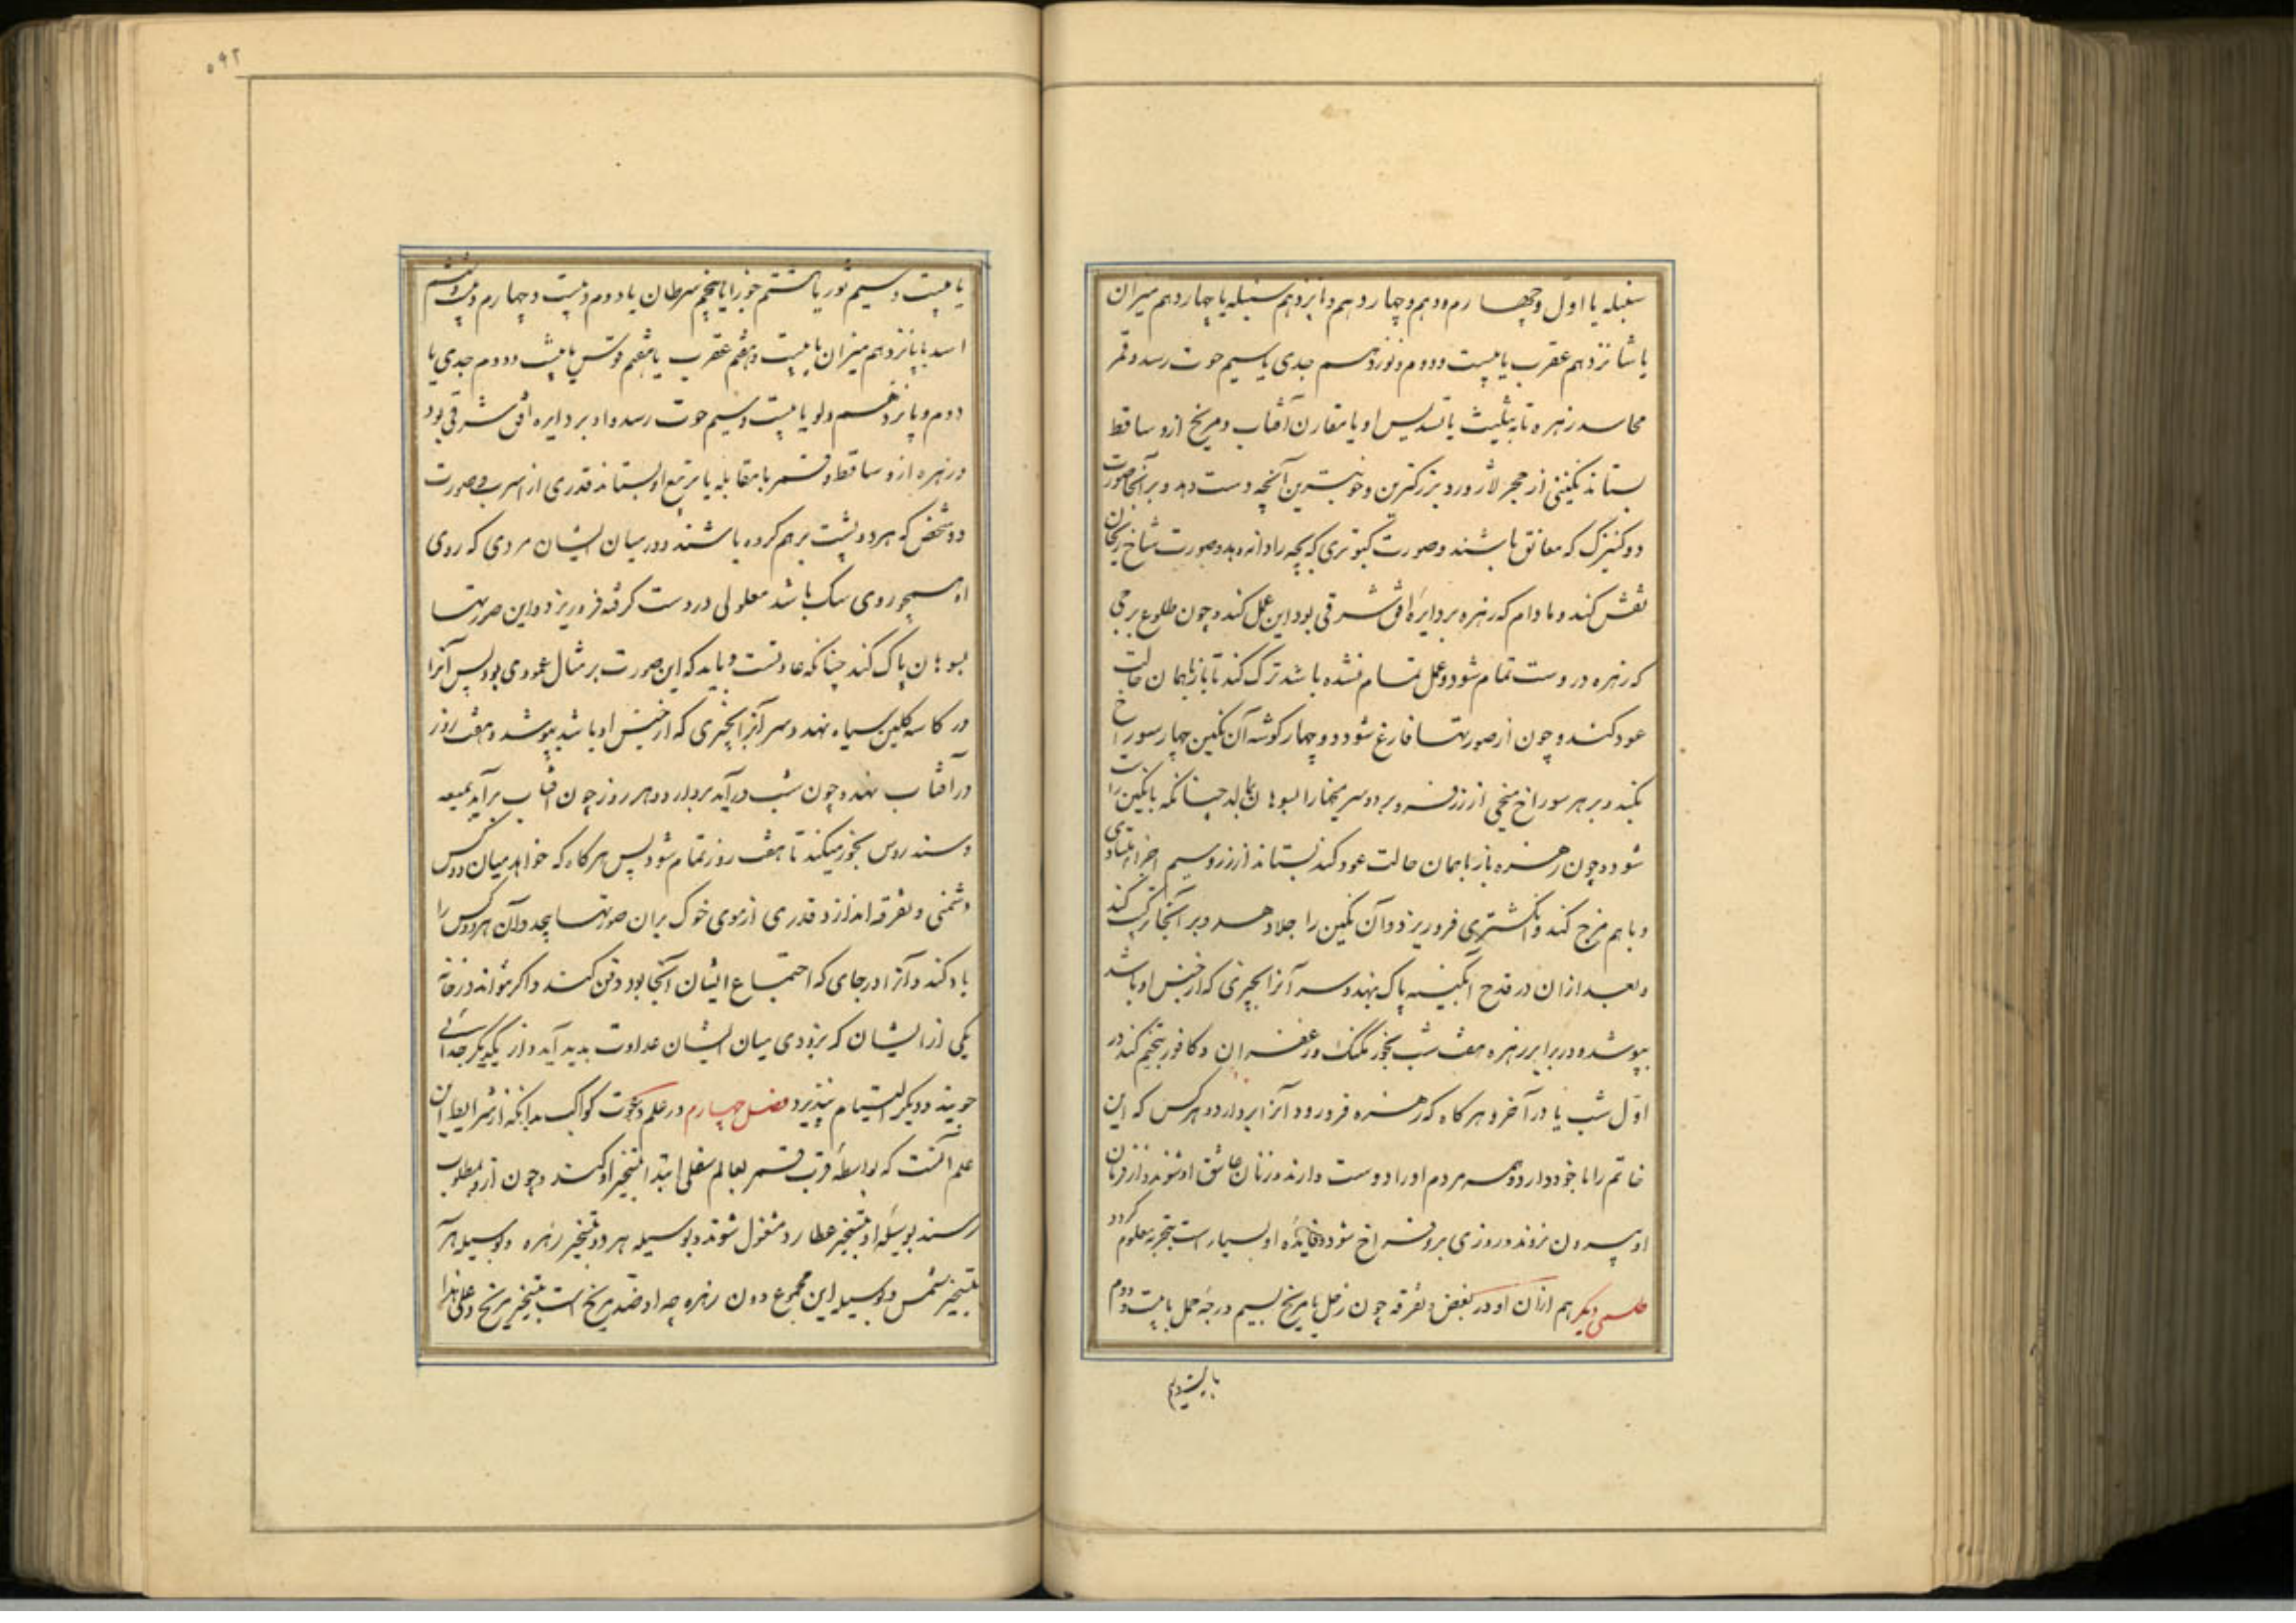 سنبله یا اول و چهارم و دهم و چهاردهم و پانزدهم سنبله یا چهاردهم میزان
یا شانزدهم عقرب یا بیست و دوم و نوزدهم جدی یا سیم حوت رسد و قمر
زهره تا به تثلیث یا تسدیس او یا مقارن آفتاب و مریخ ازو ساقط
بستاند نگینی از حجر لاژورد بزرگترین و خوبترین آنچه دست دهد و بر آنجا صورت
دو کنیزک که معانق باشند و صورت کبوتری که بچه را دانه دهد و صورت شاخ ریحان
نقش کند و مادام که زهره بر دایره افق شرقی بود این عمل کند و چون طلوع برجی
که زهره دروست تمام شود و عمل تمام نشده باشد ترک کند تا باز با همان حالت
عود کند و چون از صورتها فارغ شود دو چهار گوشه آن نگین چهار سوراخ
بکند و بر هر سوراخ میخی از زر فرو برد و سر میخها را بسوهان بمالد چنانکه با نگین راست
شود و چون زهره باز با همان حالت عود کند بستاند از زر و سیم اجزا متساوی
و با هم مزج کند و انگشتری فرو ریزد و آن نگین را جلا دهد و بر آنجا ترکیب کند
و بعد از آن در قدح آبگینه پاک نهد و سر آنرا بچیزی که از جنس او باشد
بپوشد و در برابر زهره هفت شب بخور مشک و زعفران و کافور تنجیم کند در
اول شب یا در آخر و هر کاه که زهره فرو رود آنرا بردارد و هر کس که این
خاتم را با خود دارد همه مردم او را دوست دارند و زنان عاشق او شوند و از فرمان
او بیرون نروند و روزی برو فراخ شود و فایده او بسیار است بتجربه معلوم گردد
طلسمی دیکر هم از آن او در بغض و تفرقه چون زحل یا مریخ بسیم درجه حمل یا بیست و دوم
یا بیست و سیم ثور یا هشتم جوزا یا پنجم سرطان یا دوم و بیست و چهارم و بیست و هشتم
اسد یا پانزدهم میزان یا بیست و هفتم عقرب یا هفتم قوس یا بیست و دوم جدی یا
دوم و پانزدهم دلو یا بیست و سیم حوت رسد و او بر دایره افق شرقی بود
و زهره ازو ساقط و قمر با مقابله یا تربیع او بستاند قدری از اسرب و صورت
دو شخص که هر دو پشت بر هم کرده باشند و در میان ایشان مردی که روی
او همچو روی سک باشد معلولی در دست کرفته فرو ریزد و این صورتها
بسوهان پاک کند چنانکه عادتست و باید که این صورت بر مثال عمودی بود پس آنرا
در کاسه گلین سیاه نهد و سر آنرا بچیزی که از جنس او باشد بپوشد و هفت روز
در آفتاب نهد و چون شب در آید بردارد و هر روز چون آفتاب برآید بمیعه
و سندروس بخور میکند تا هفت روز تمام شود پس هر کاه که خواهد میان دو کس
دشمنی و تفرقه اندازد قدری از موی خوک بر آن صورتها پیچد و آن هر دو کس را
یاد کند و آنرا در جای که اجتماع ایشان آنجا بود دفن کند و اگر نتواند در خانه
یکی از ایشان که بزودی میان ایشان عداوت پدید آید و از یکدیگر جدائی
جویند و دیگر التیام نپذیرد فصل چهارم در علم دعوت کواکب بدانکه از شرایط این
علم آنست که بواسطه قرب قمر بعالم سفلی ابتدا بتسخیر او کنند و چون ازو بمطلوب
رسند بوسیله او بتسخیر عطارد مشغول شوند و بوسیله هر دو بتسخیر زهره و بوسیله هر سه
بتسخیر شمس و بوسیله این مجموع دون زهره چه او ضد مریخ است بتسخیر مریخ و علی هذا